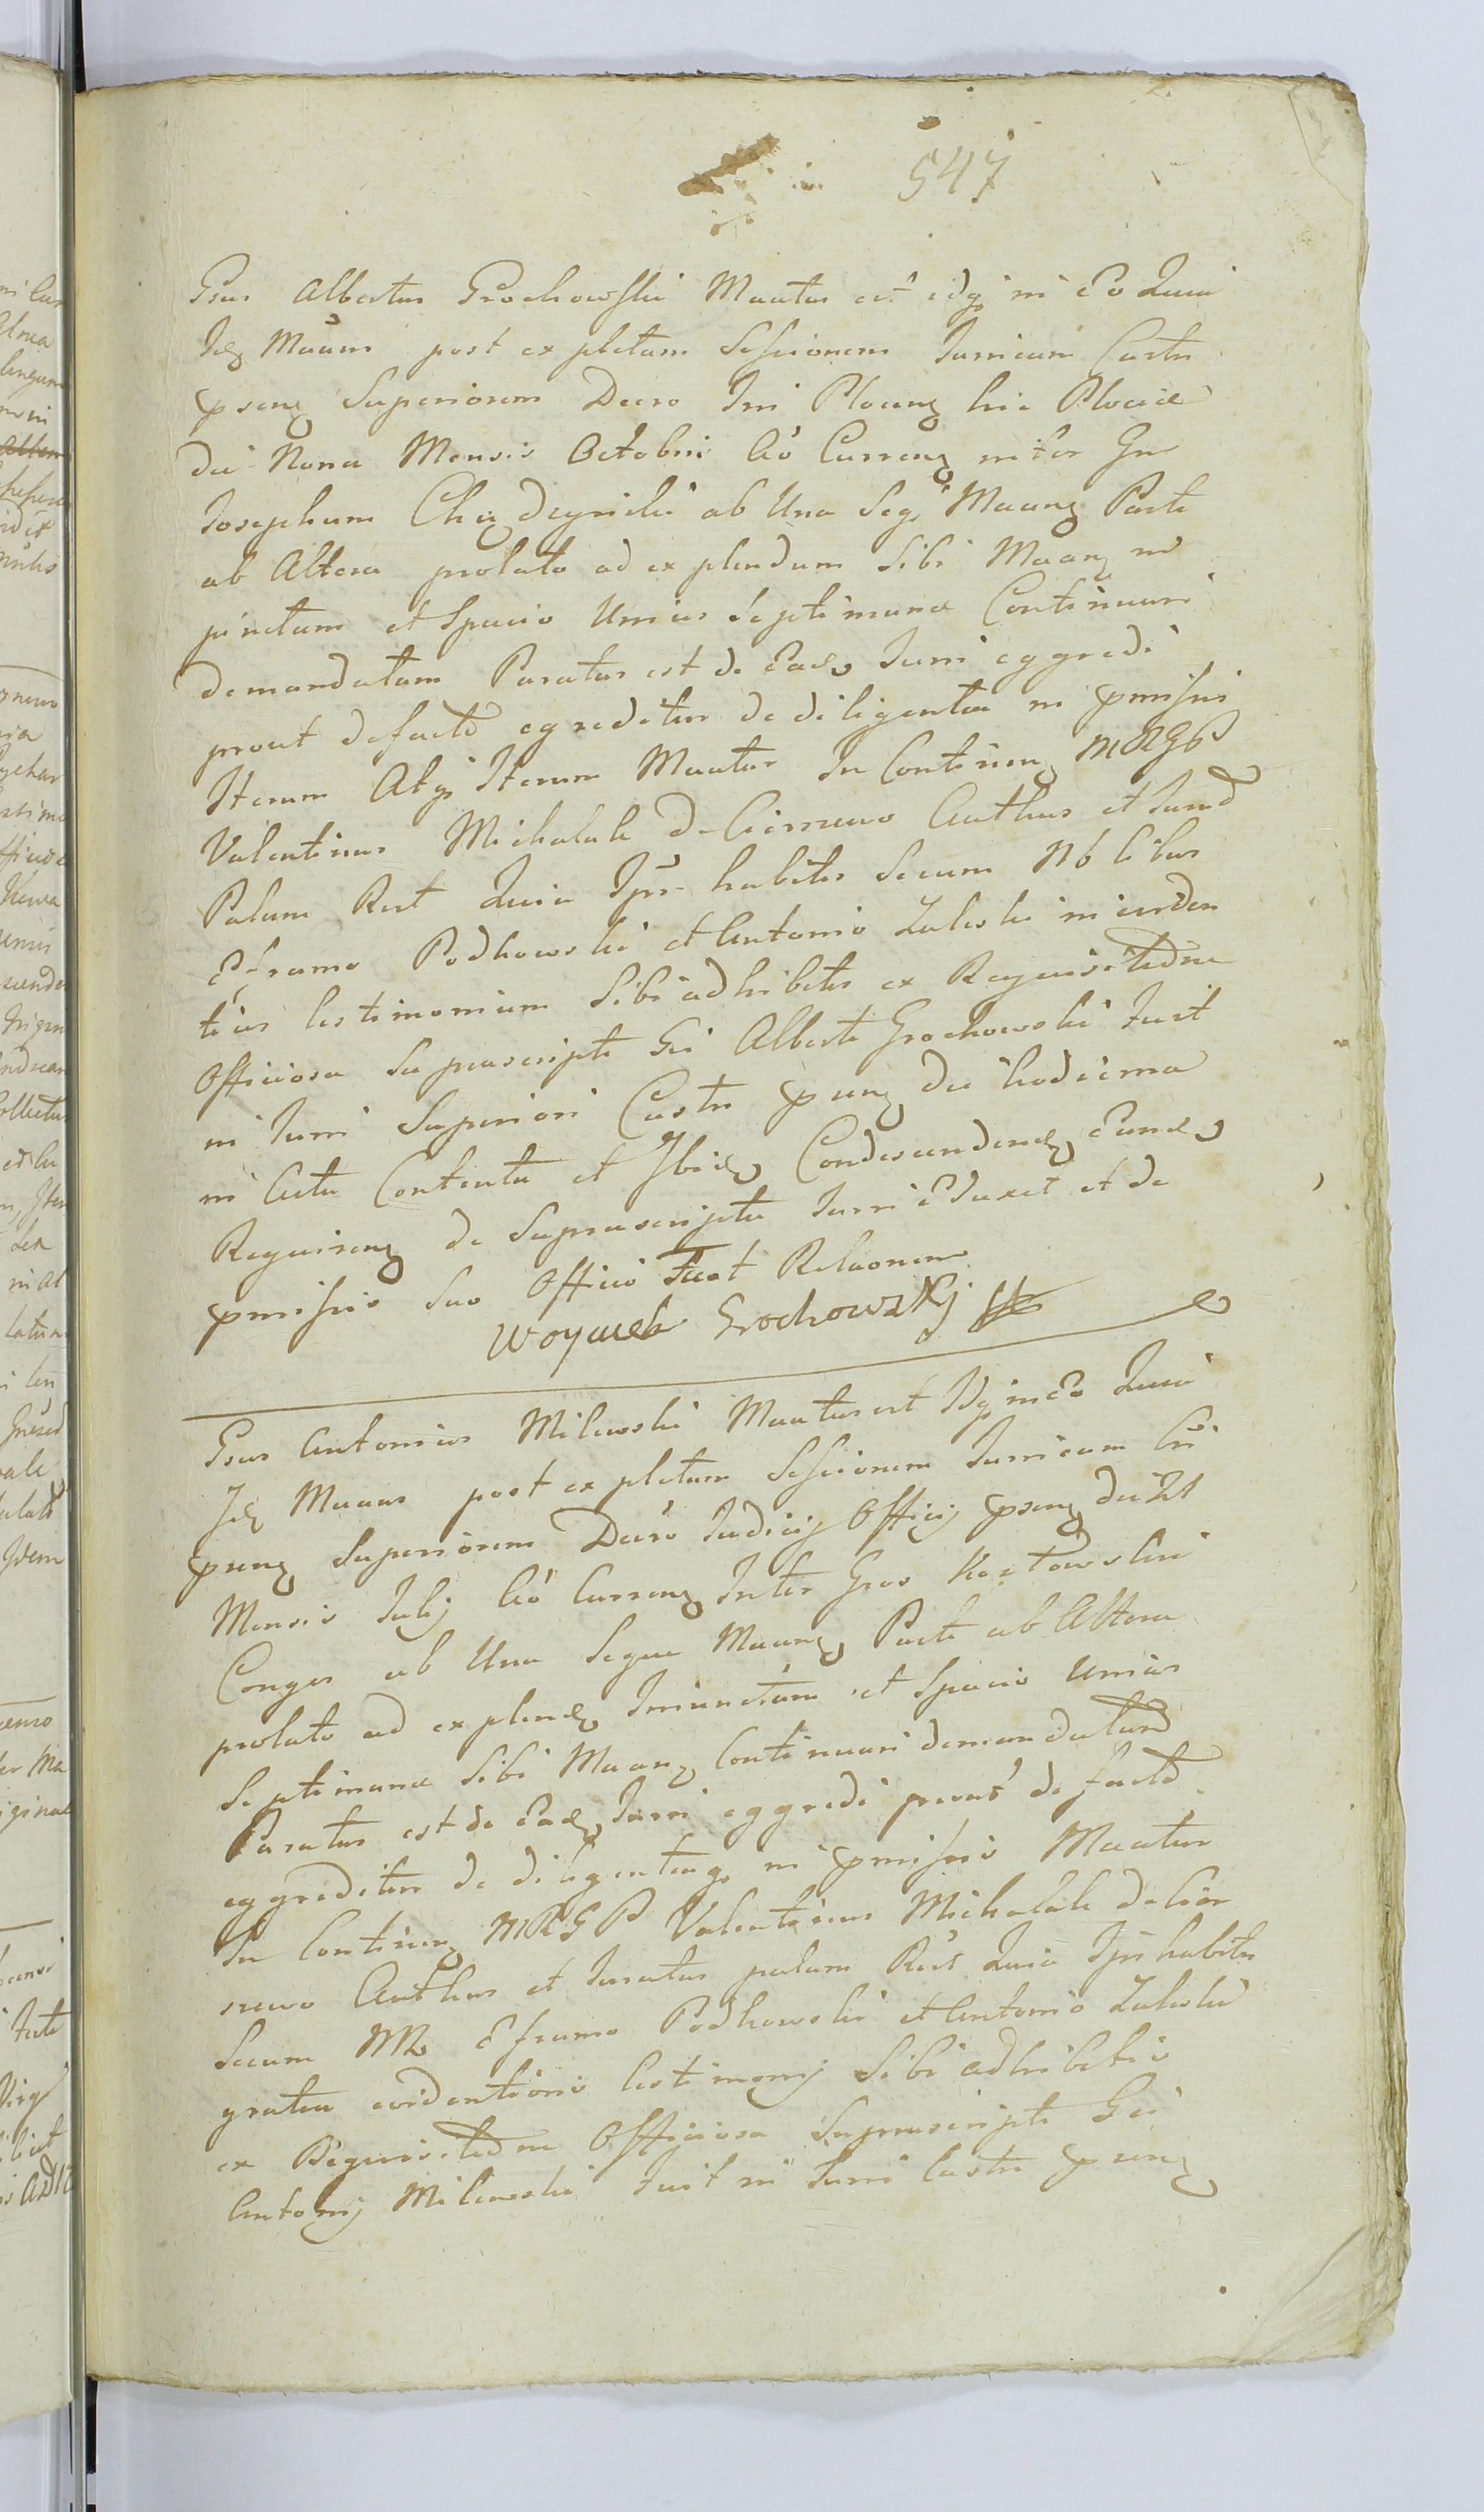 547
Gsus Albertus Grochowski Maatur est idq in Eo Quia
Idq Maans post expletam Sessionem Turricam Castri
psenq Superiorem Decro Iri Plocenq hic Plociae
die Nona Mensis Octobris Ao Currenq inter Gm
Josephum Chądzyński ab Una Seq Maanq Parte
ab Altera prolato ad explendum Sibi Maanq in
junctam et Spacio Unius Septimanae Continuari
demandatam Paratus est de Eadq Turri eggredi
prout defacto egreditur de diligentia in pmissis
Iterum Atq Iterum Maatur In Continenq MRGP
Valentinus Michalak de Ciernewo Authus et Jurad
Palam Rect Quia Ipse habitis Secum Nblibus
Eframo Podkowski et Antonio Zaleski in eviden
tius testimonium Sibi adhibitis ex Requisitione
Officiosa Suprascripti Gsi Alberti Grochowski Fuit
in Turri Superiori Castri psenq die hodierna
in Actu Contenta et Ibidq Condescendendq Eundq
Requirenq de Suprascripta Turri Eduxit et de
pmissis Suo Officio Fecit Relaonem
Woyciech Grochowski
Gsus Antonius Milewski Maatur est Idq in Eo Quia
Idq Maans post expletam Sessionem Turricam Cri
psenq Superiorem Decro Judicij Officij psenq die 21
Mensis Julij Ao Currenq Inter Gsos Kozłowskie
Conges ab Una Seque Maanq Parte ab Altera
prolato ad explendq Iniunctam et Spacio Unius
Septimanae Sibi Maanq Continuari demandatam
Paratus est de Eadq Turri eggredi prout de facto
eggreditur de diligentiaq in pmissis Maatur
In Continenq MRGP Valentinus Michalak de Cier
newo Authus et Juratus palam Rect Quia Ipse habitis
Secum NN Eframo Podkowski et Antonio Zaleski
gratia evidentioris testimonij Sibi adhibitis
ex Requisitione Officiosa Suprascripti Gsi
Antonij Milewski Fuit in Turri Castri psenq